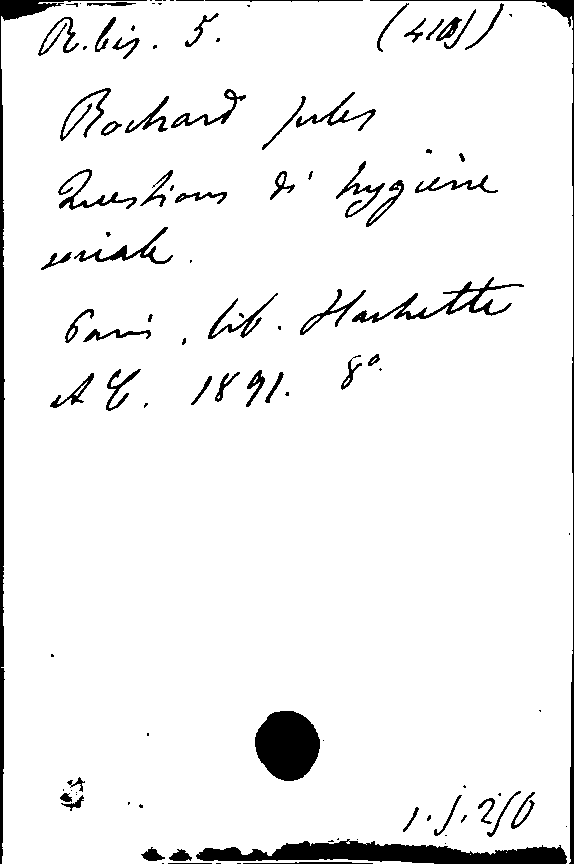 R. bis. 5.
Rochard Jules
Questions d' hygiène
sociale.
Paris, lib. Hachette
et C. 1891. 8°.